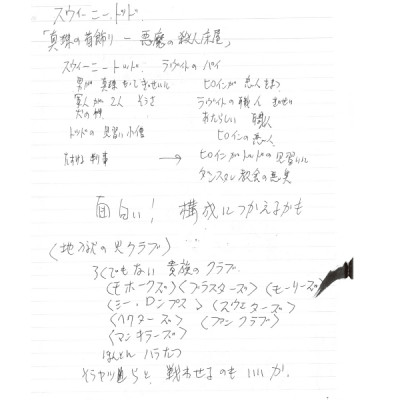 スウィーニー・トッド
「真珠の首飾り － 悪魔の殺人床屋」
スウィーニー・トッド ラヴィットのパイ
男が 真珠 もって きせいに ヒロインが 恋人 まつ
軍人が 2人 そうさ ラヴィットの 職人
犬の あたらしい 職人
トッドの 見習い小僧 ヒロインの 恋人
判事 → ヒロインが トッドの 見習いに
ダンスタン 教会の悪臭
面白い! 構成につかえるかも
〈地獄の火クラブ〉
ろくでもない 貴族の クラブ
〈モホークズ〉〈ブラスターズ〉〈モーリーズ〉
〈シー・ロンプス〉〈スウェターズ〉
〈ヘクターズ〉〈ファンクラブ〉
〈マンキラーズ〉
ほんとに ハラたつ
と、戦わせるのも いいか。